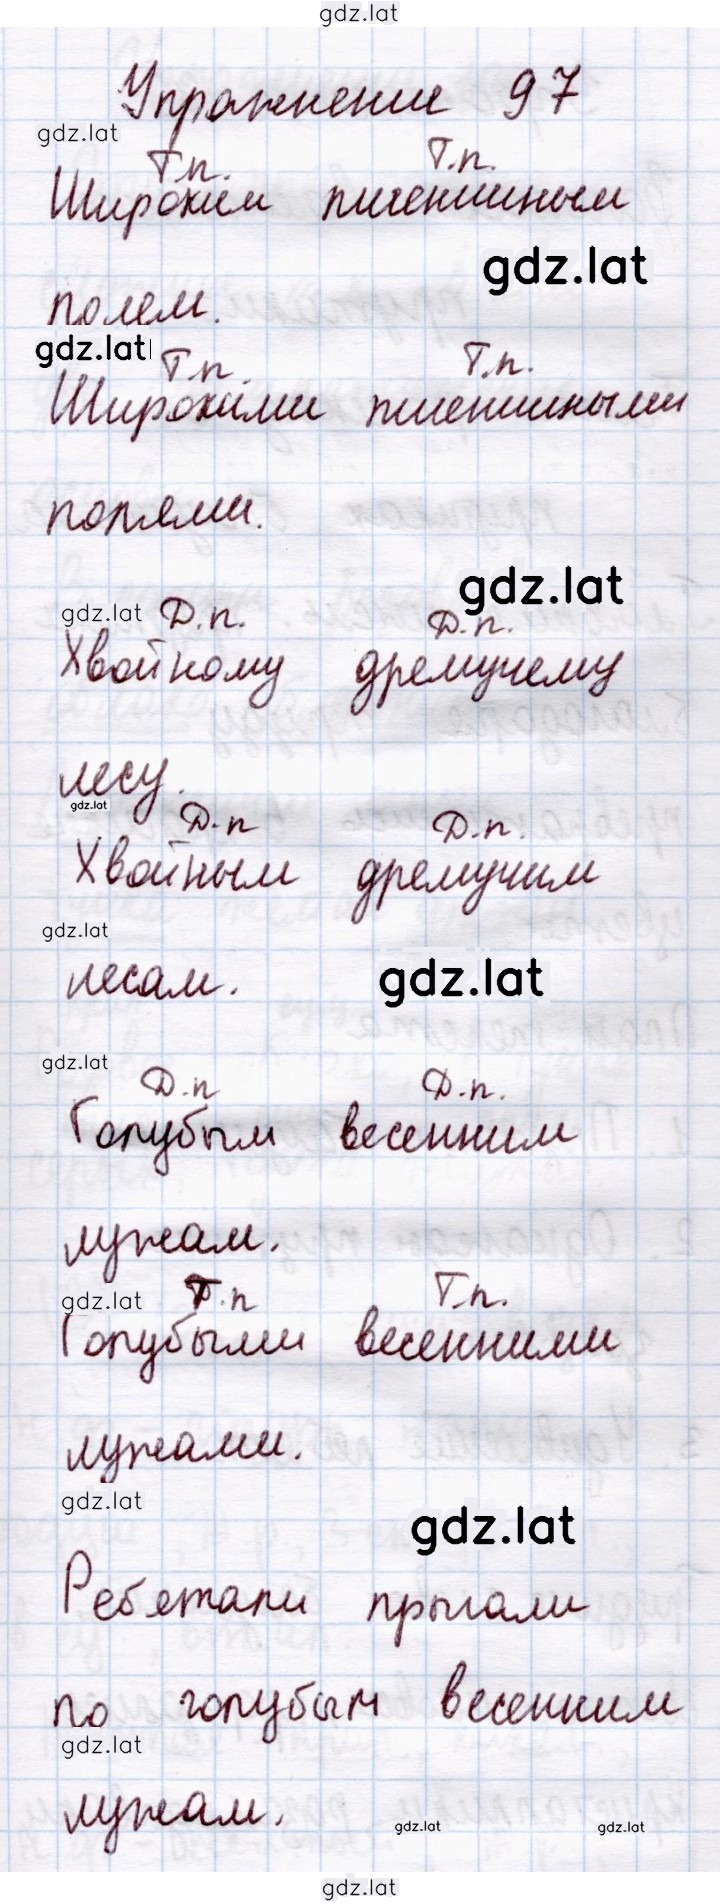 gdz.lat
Упражнение 97
gdz.lat
Т.п. Т.п.
Широким пшеничным
gdz.lat
полем.
gdz.lat
Т.п. Т.п.
Широкими пшеничными
полями.
gdz.lat
gdz.lat Д.п. Д.п.
Хвойному дремучему
лесу.
gdz.lat
Д.п Д.п.
Хвойным дремучим
gdz.lat
лесам.
gdz.lat
gdz.lat
Д.п Д.п.
Голубым весенним
лужам.
gdz.lat Т.п Т.п.
Голубыми весенними
лужами.
gdz.lat
gdz.lat
Ребятали прыгали
по голубым весенним
gdz.lat
лужам.
gdz.lat gdz.lat
gdz.lat